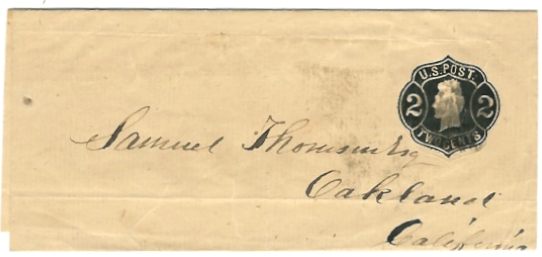 U.S. POST.
2 2
TWO CENTS
Samuel Thomson Esq
Oakland
California